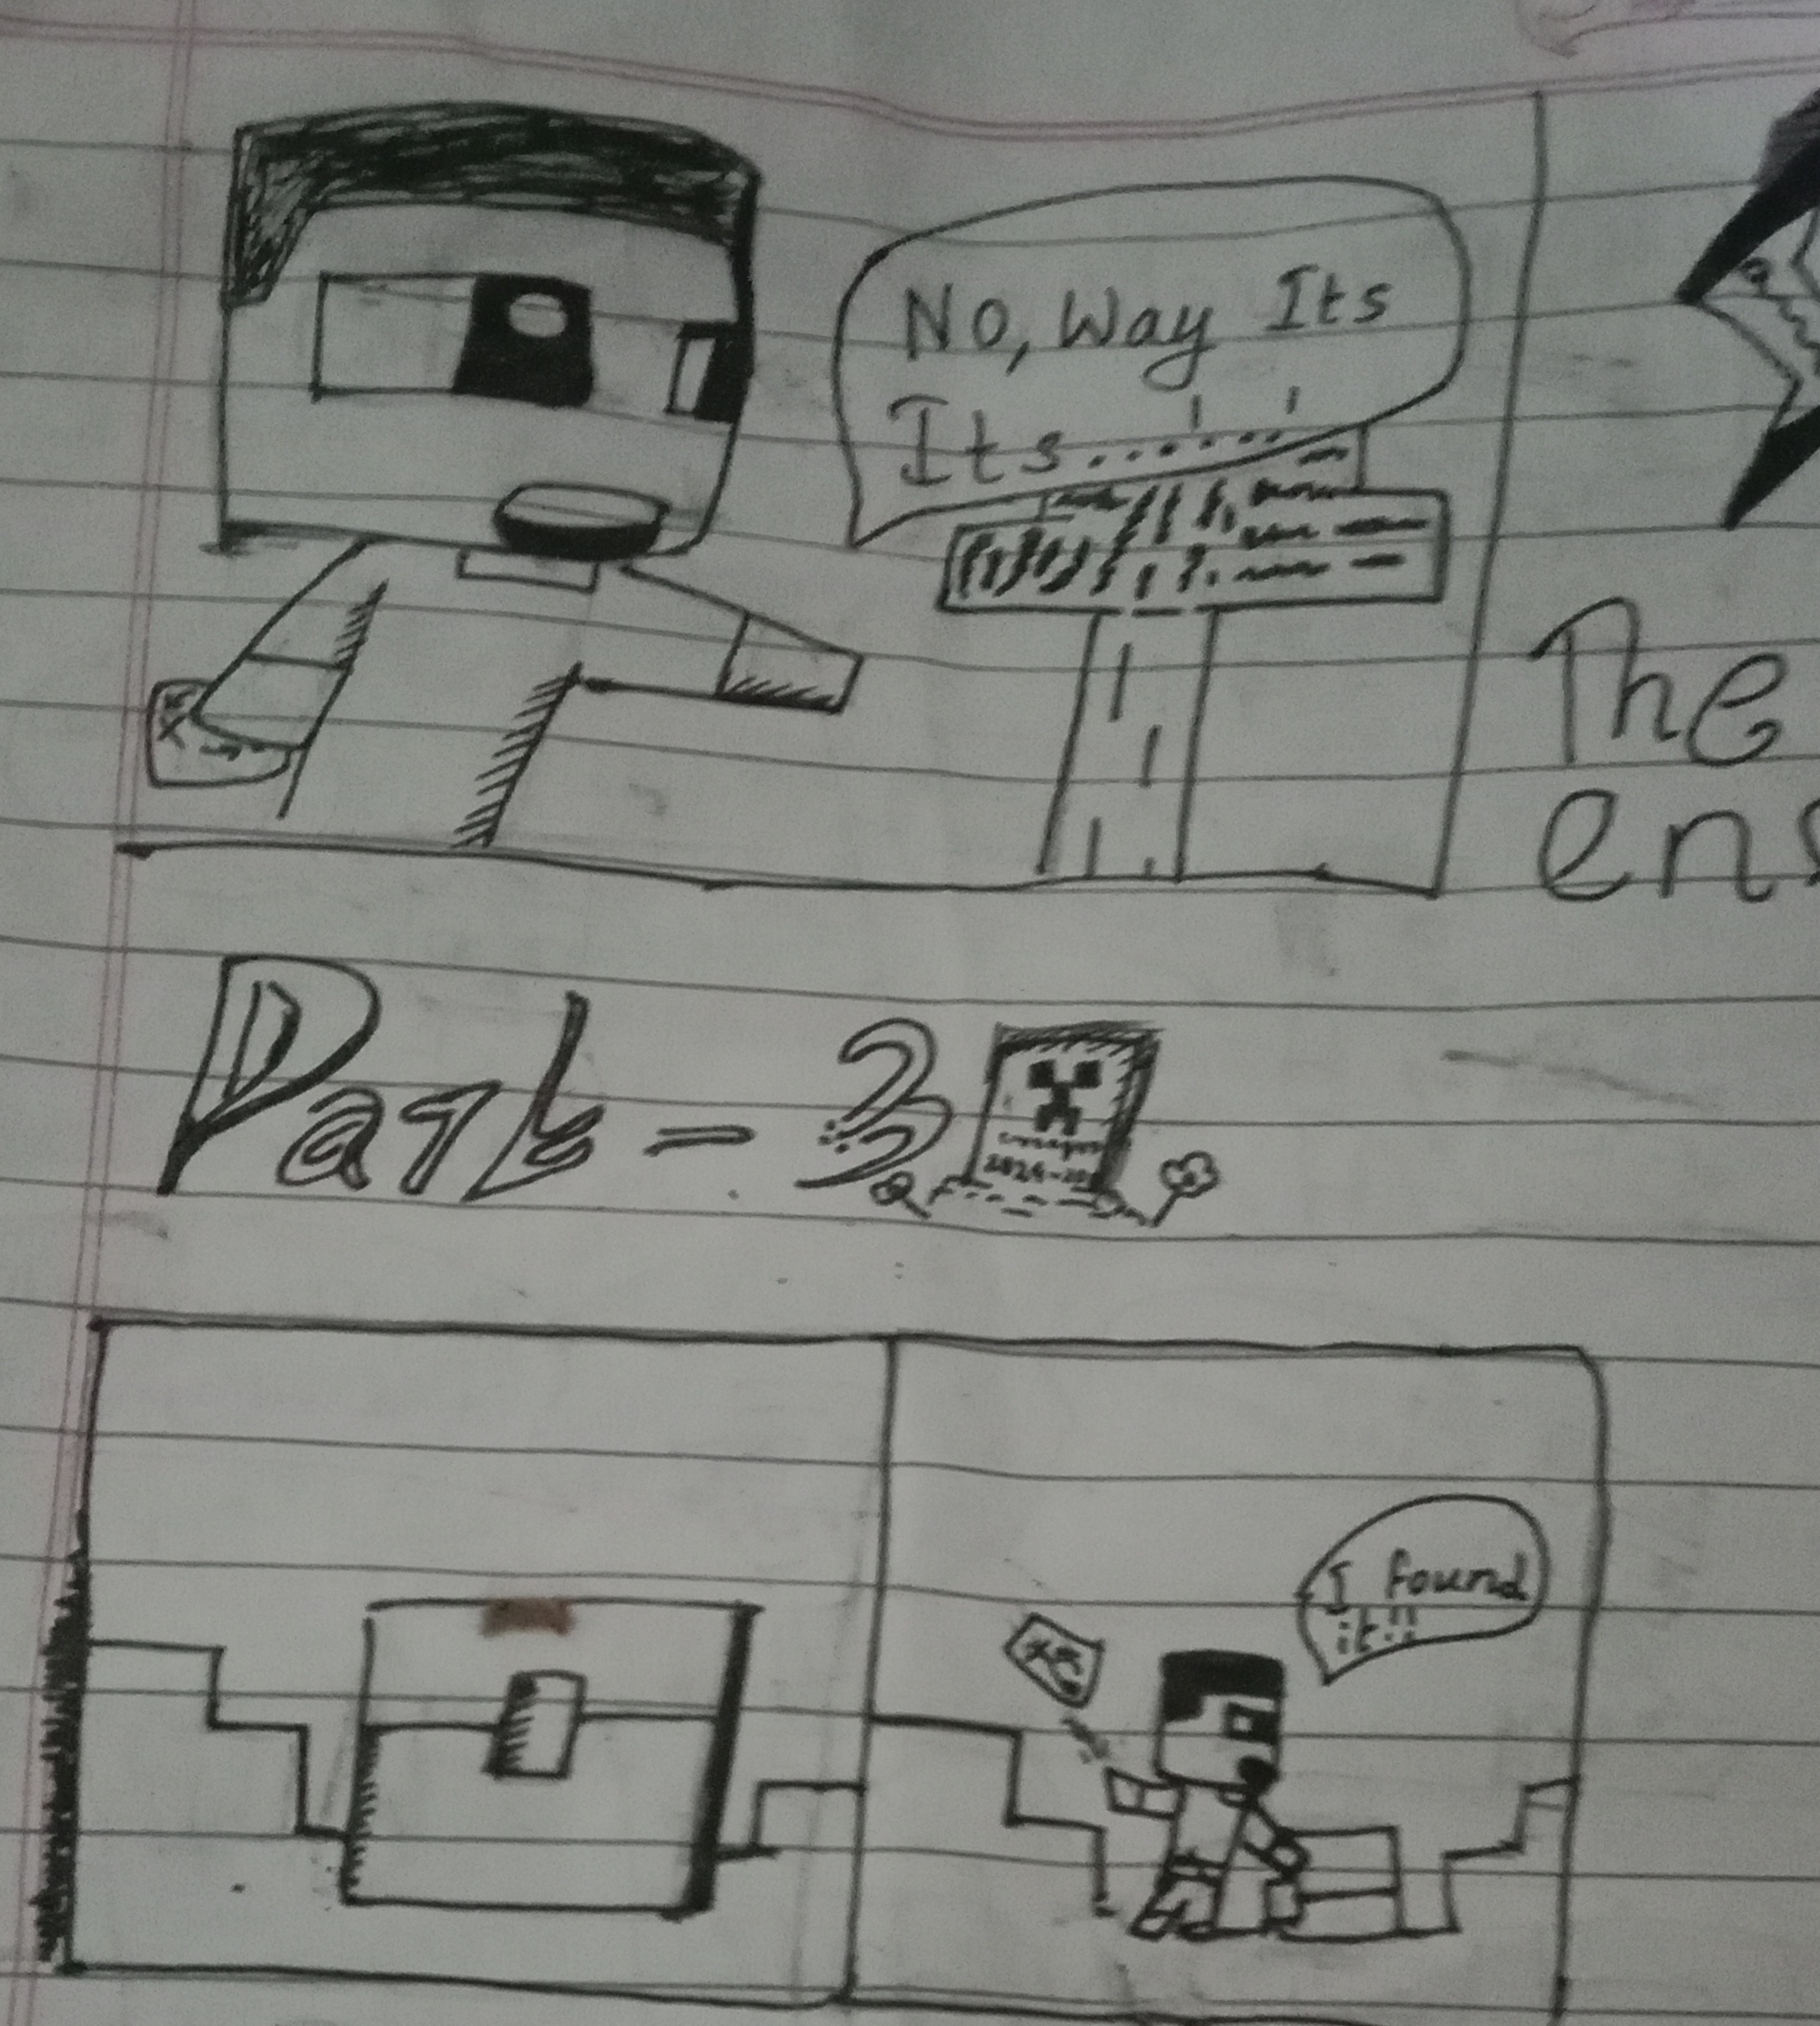 No, Way Its
Its......!!
The
ens
Part - 3
I found
it!!